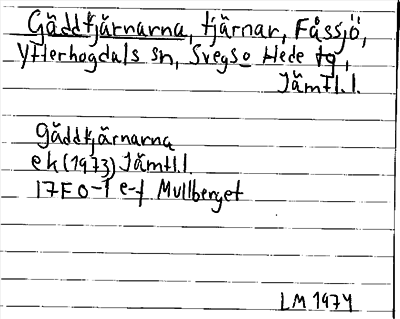 Gäddtjärnarna, tjärnar, Fåssjö,
Ytterhogdals sn, Svegs o Hede tg,
Jämtl.l.
Gäddtjärnarna
ek (1973) Jämtl.l
17E 0-1 e-f Mullberget
LM 1974